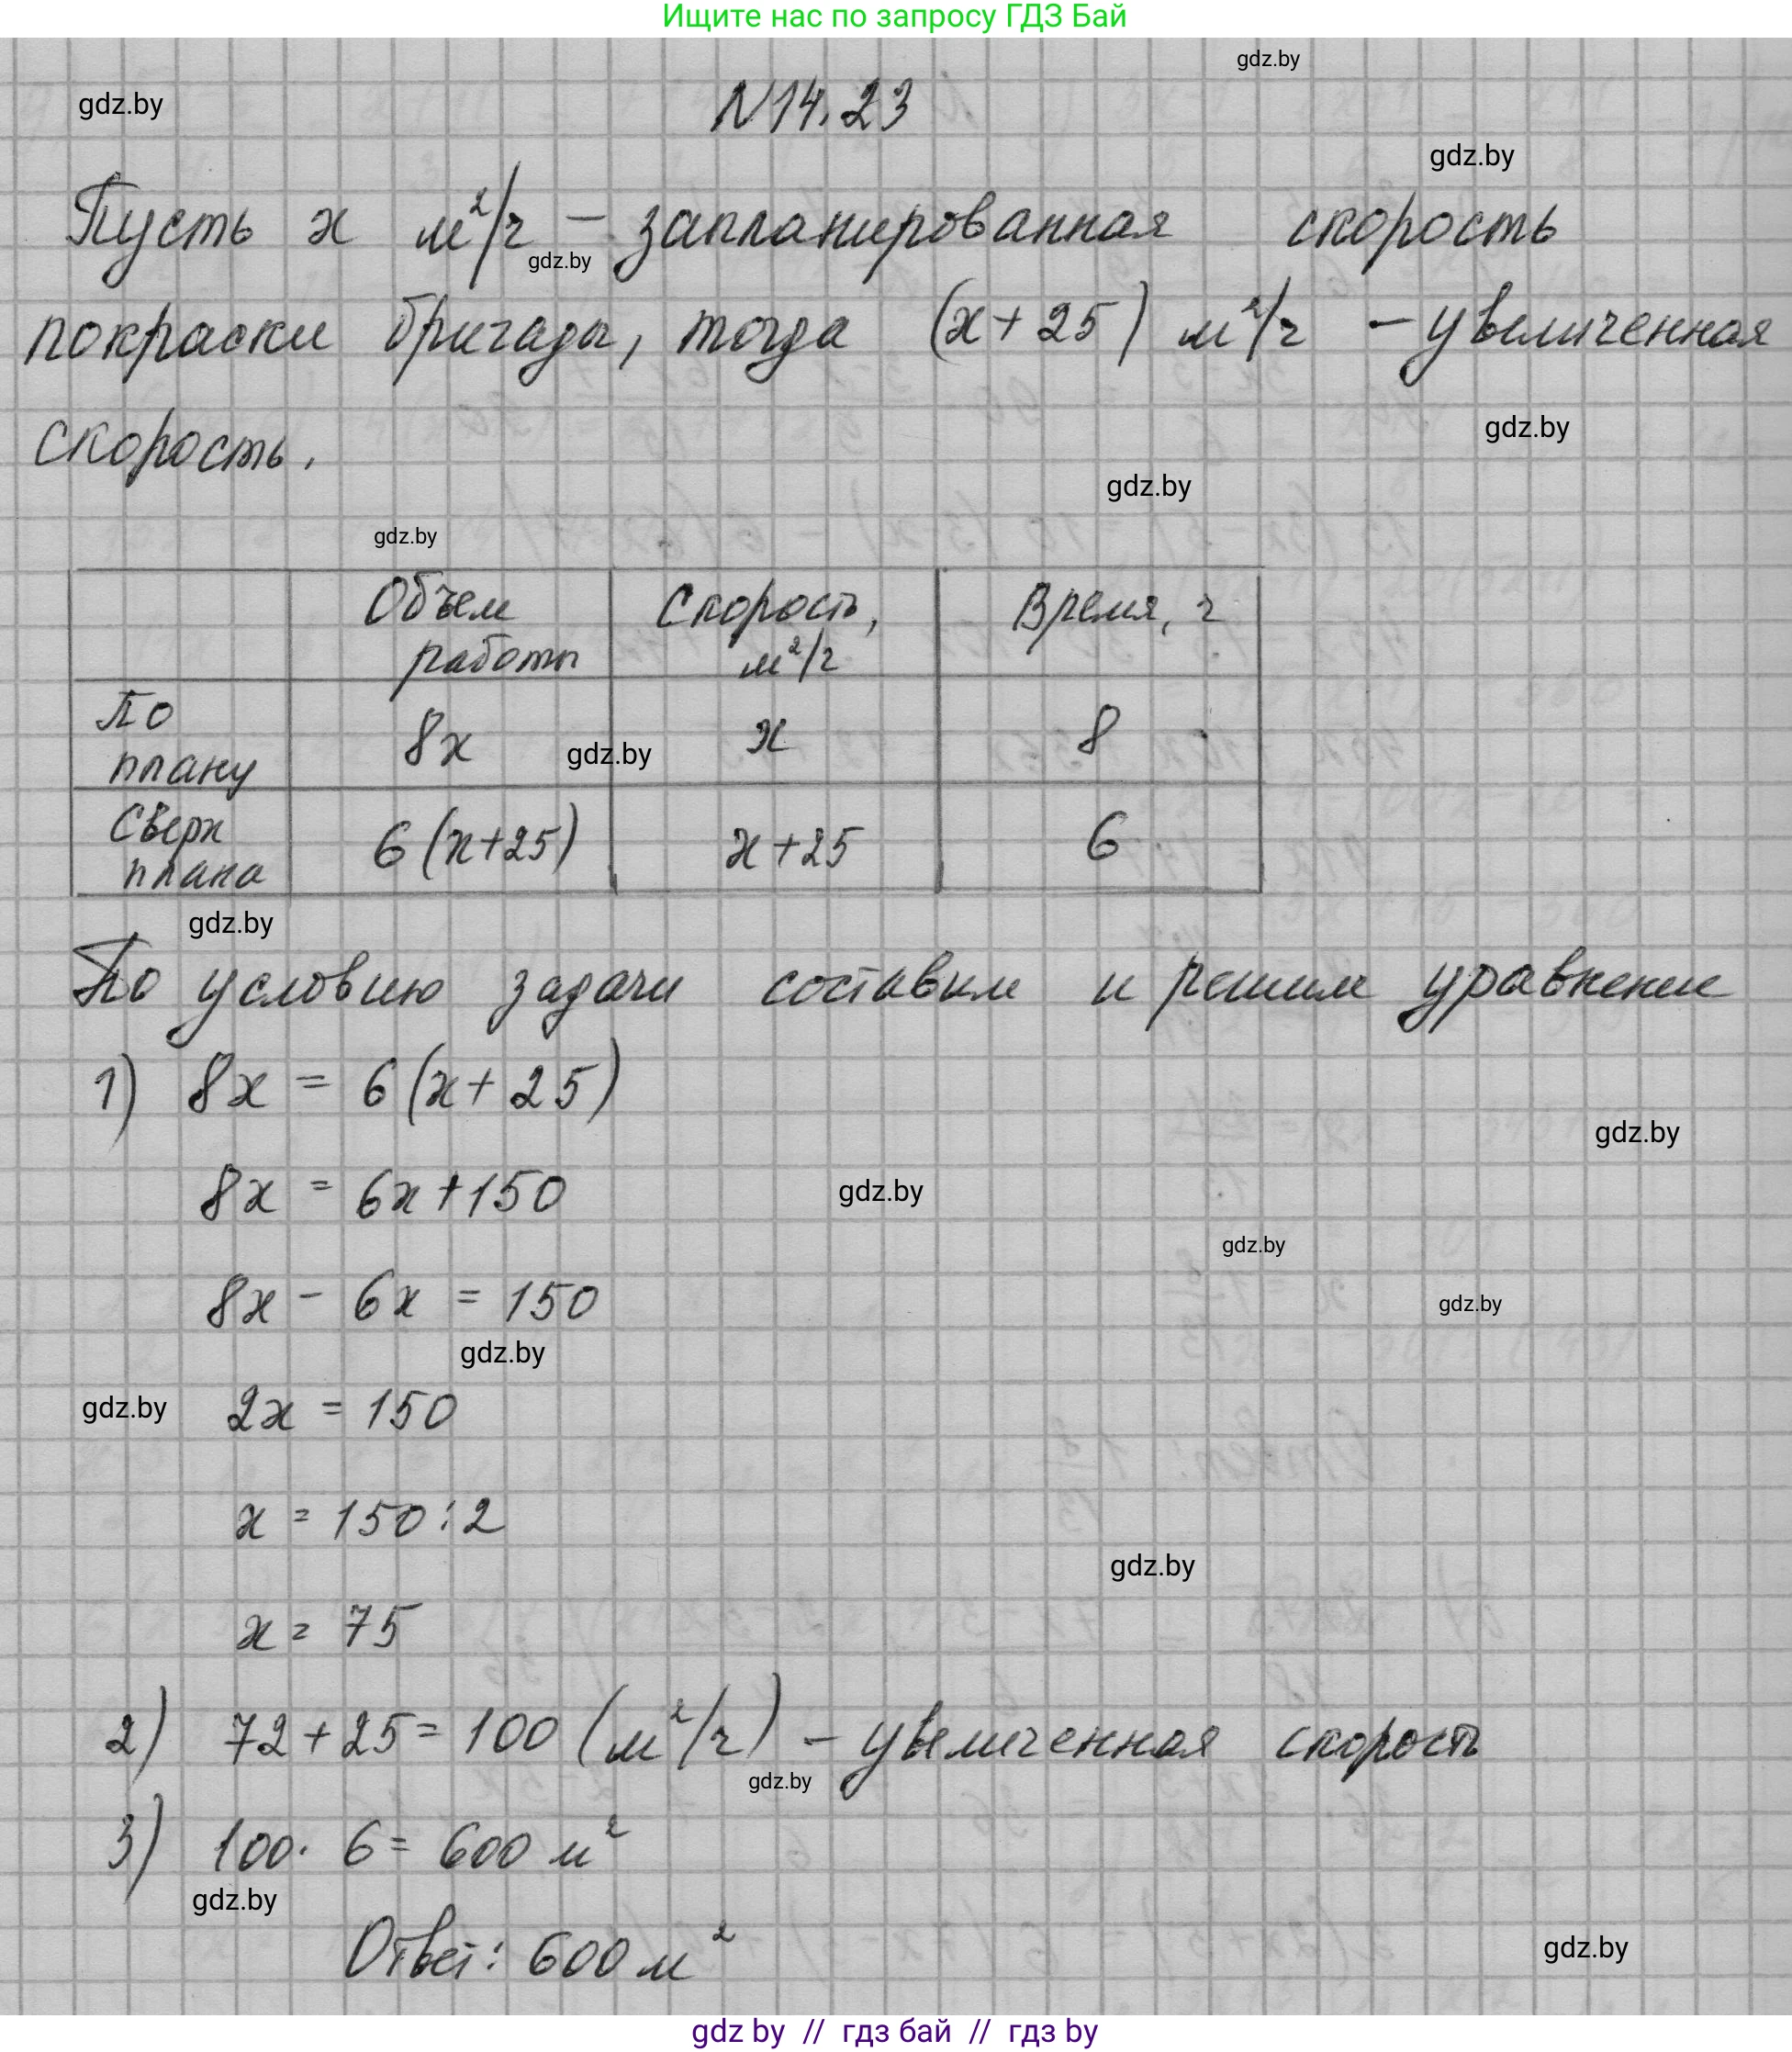 Ищите нас по запросу ГДЗ Бай
gdz.by
gdz.by
N14.23
gdz.by
Пусть x м²/ч – запланированная скорость
gdz.by
покраски бригады, тогда (x+25) м²/ч – увеличенная
скорость.
gdz.by
gdz.by
gdz.by
Объем работы Скорость, м²/ч Время, ч
По плану 8x x 8
gdz.by
Сверх плана 6(x+25) x+25 6
gdz.by
По условию задачи составим и решим уравнение
1) 8x = 6(x+25)
gdz.by
8x = 6x+150
gdz.by
gdz.by
8x - 6x = 150
gdz.by
gdz.by
gdz.by
2x = 150
x = 150:2
gdz.by
x = 75
2) 72+25=100 (м²/ч) – увеличенная скорость
gdz.by
3) 100· 6= 600 м²
gdz.by
Ответ: 600 м²
gdz.by
gdz by // гдз бай // гдз by